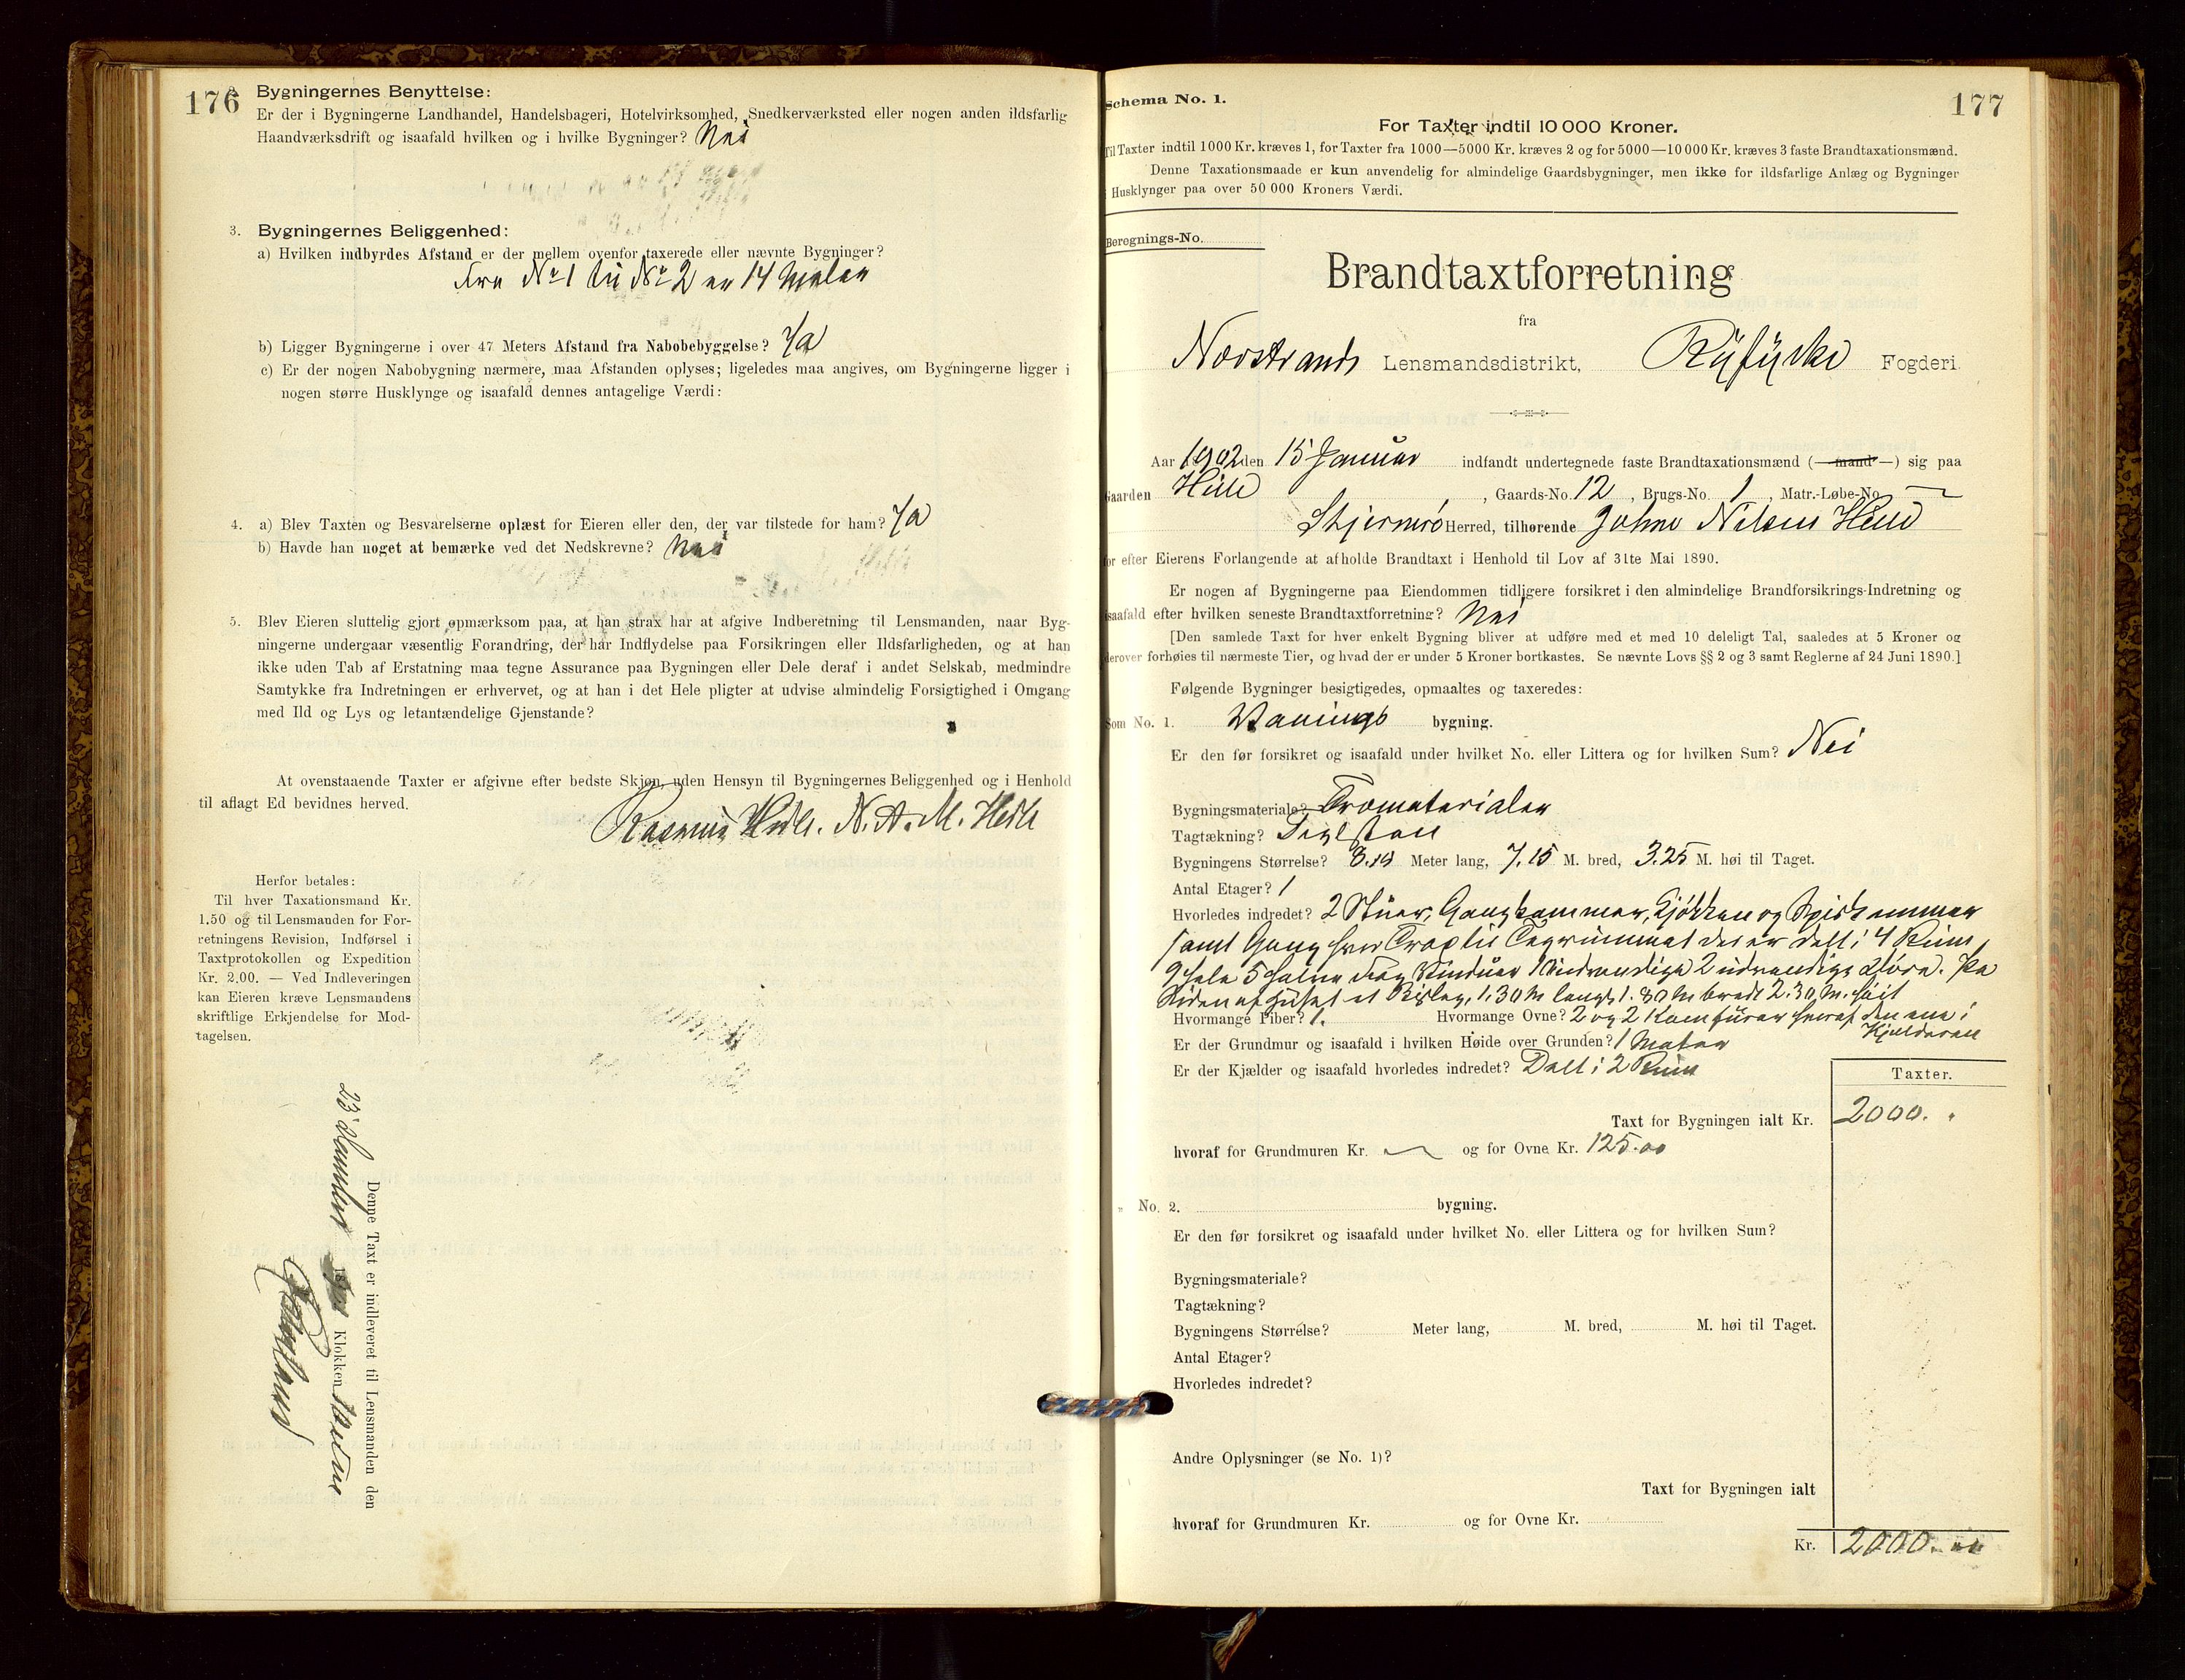 176
Bygningernes Benyttelse:
Er der i Bygningerne Landhandel, Handelsbageri, Hotelvirksomhed, Snedkerværksted eller nogen anden ildsfarlig
Haandværksdrift og isaafald hvilken og i hvilke Bygninger? Nei
3. Bygningernes Beliggenhed:
a) Hvilken indbyrdes Afstand er der mellem ovenfor taxerede eller nævnte Bygninger?
Fra No 1 til No 2 er 14 Meter
b) Ligger Bygningerne i over 47 Meters Afstand fra Nabobebyggelse? Ja
c) Er der nogen Nabobygning nærmere, maa Afstanden oplyses; ligeledes maa angives, om Bygningerne ligger i
nogen større Husklynge og isaafald dennes antagelige Værdi:
4. a) Blev Taxten og Besvarelserne oplæst for Eieren eller den, der var tilstede for ham? Ja
b) Havde han noget at bemærke ved det Nedskrevne? Nei
5. Blev Eieren sluttelig gjort opmærksom paa, at han strax har at afgive Indberetning til Lensmanden, naar Byg-
ningerne undergaar væsentlig Forandring, der har Indflydelse paa Forsikringen eller Ildsfarligheden, og at han
ikke uden Tab af Erstatning maa tegne Assurance paa Bygningen eller Dele deraf i andet Selskab, medmindre
Samtykke fra Indretningen er erhvervet, og at han i det Hele pligter at udvise almindelig Forsigtighed i Omgang
med Ild og Lys og letantændelige Gjenstande?
At ovenstaaende Taxter er afgivne efter bedste Skjøn, uden Hensyn til Bygningernes Beliggenhed og i Henhold
til aflagt Ed bevidnes herved.
Rasmus Helle. N. A. M. Helle
Herfor betales:
Til hver Taxationsmand Kr.
1.50 og til Lensmanden for For-
retningens Revision, Indførsel i
Taxtprotokollen og Expedition
Kr. 2.00. — Ved Indleveringen
kan Eieren kræve Lensmandens
skriftlige Erkjendelse for Mod-
tagelsen.
Denne Taxt er indleveret til Lensmanden den
23 Klokken
177
Schema No. 1.
For Taxter indtil 10 000 Kroner.
Til Taxter indtil 1000 Kr. kræves 1, for Taxter fra 1000—5000 Kr. kræves 2 og for 5000—10 000 Kr. kræves 3 faste Brandtaxationsmænd.
Denne Taxationsmaade er kun anvendelig for almindelige Gaardsbygninger, men ikke for ildsfarlige Anlæg og Bygninger
i Husklynger paa over 50 000 Kroners Værdi.
Beregnings-No.
Brandtaxtforretning
fra
Nærstrands Lensmandsdistrikt, Ryfylke Fogderi
Aar 1902 den 15 Januar indfandt undertegnede faste Brandtaxationsmænd (— mand —) sig paa
Gaarden Helle, Gaards-No. 12, Brugs-No. 1, Matr.-Løbe-No. —
Stjernerø Herred, tilhørende Johne Nilsen Helle
for efter Eierens Forlangende at afholde Brandtaxt i Henhold til Lov af 31te Mai 1890.
Er nogen af Bygningerne paa Eiendommen tidligere forsikret i den almindelige Brandforsikrings-Indretning og
isaafald efter hvilken seneste Brandtaxtforretning? Nei
[Den samlede Taxt for hver enkelt Bygning bliver at udføre med et med 10 deleligt Tal, saaledes at 5 Kroner og
derover forhøies til nærmeste Tier, og hvad der er under 5 Kroner bortkastes. Se nævnte Lovs §§ 2 og 3 samt Reglerne af 24 Juni 1890.]
Følgende Bygninger besigtigedes, opmaaltes og taxeredes:
Som No. 1. Vaanings bygning.
Er den før forsikret og isaafald under hvilket No. eller Littera og for hvilken Sum? Nei
Bygningsmateriale? Træmaterialer
Tagtækning? Teglsten
Bygningens Størrelse? Meter lang, 7.15 M. bred, 3.25 M. høi til Taget.
Antal Etager? 1
Hvorledes indredet? 2 Stuer, Gangkammer, Kjøkken og Spiskammer
samt Gang hvor Trap til Tagrummet der er delt i 4 Rum,
9 hele 5 halve Fag Vinduer 2 udvendige Døre. Paa
Siden af Huset et Bislag, 1.30 M langt 1.80 M bredt 2.30 M. høit
Hvormange Piber? 1. Hvormange Ovne? 2 og 2 Komfurer hvoraf den ene i
Kjelderen
Er der Grundmur og isaafald i hvilken Høide over Grunden? 1 Meter
Er der Kjælder og isaafald hvorledes indredet? Delt i 2 Rum
Taxter.
Taxt for Bygningen ialt Kr. 2000. "
hvoraf for Grundmuren Kr. — og for Ovne Kr. 125.00
" No. 2. bygning.
Er den før forsikret og isaafald under hvilket No. eller Littera og for hvilken Sum?
Bygningsmateriale?
Tagtækning?
Bygningens Størrelse? Meter lang, M. bred, M. høi til Taget.
Antal Etager?
Hvorledes indredet?
Andre Oplysninger (se No. 1)?
Taxt for Bygningen ialt
hvoraf for Grundmuren Kr. og for Ovne Kr.
Kr. 2000.00